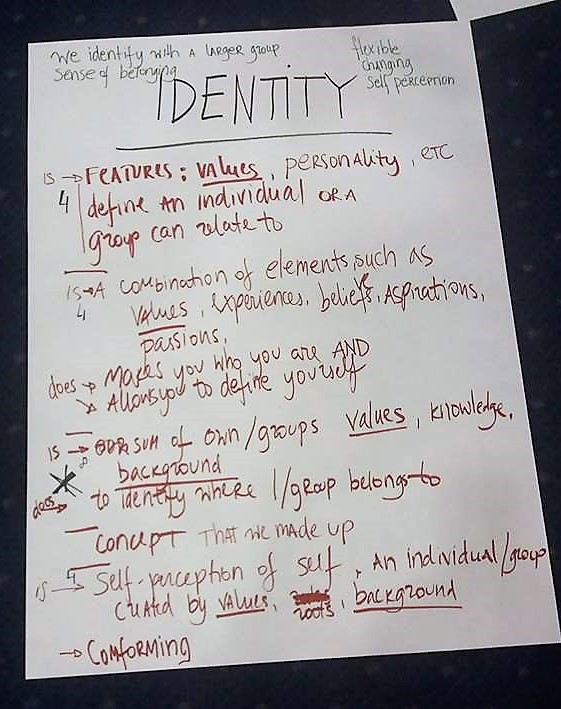 we identify with A larger group
sense of belonging
flexible
changing
self perception
IDENTITY
is → FEATURES : values, personality, etc
4 define An individual OR A
group can relate to
is → A combination of elements such as
4 values, experiences, beliefs, Aspirations,
passions,
does → Makes you who you are AND
→ Allows you to define yourself
is → SUM of own/groups values, knowledge,
background
does → to identify where I/group belongs to
concept that we made up
is → 4 Self-perception of self, An individual/group
created by values, roots, background
→ Comforming